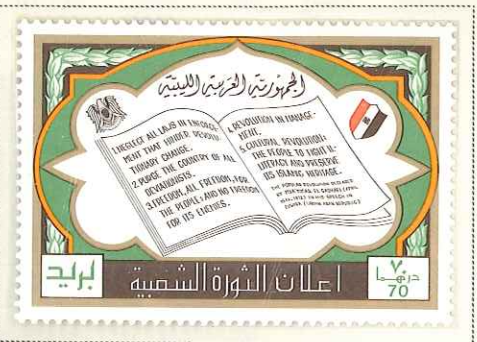 الجمهورية العربية الليبية
1. NEGLECT ALL LAWS IN ENFORCE-
MENT THAT HINDER REVOLU-
TIONARY CHANGE.
2. PURGE THE COUNTRY OF ALL
DEVIATIONISTS.
3. FREEDOM, ALL FREEDOM, FOR
THE PEOPLE; AND NO FREEDOM
FOR ITS ENEMIES.
4. REVOLUTION IN MANAGE-
MENT.
5. CULTURAL REVOLUTION:
THE PEOPLE TO FIGHT IL-
LITERACY AND PRESERVE
ITS ISLAMIC HERITAGE.
THE POPULAR REVOLUTION DECLARED
IN HIS SPEECH IN
بريد
اعلان الثورة الشعبية
٧٠
درهما
70